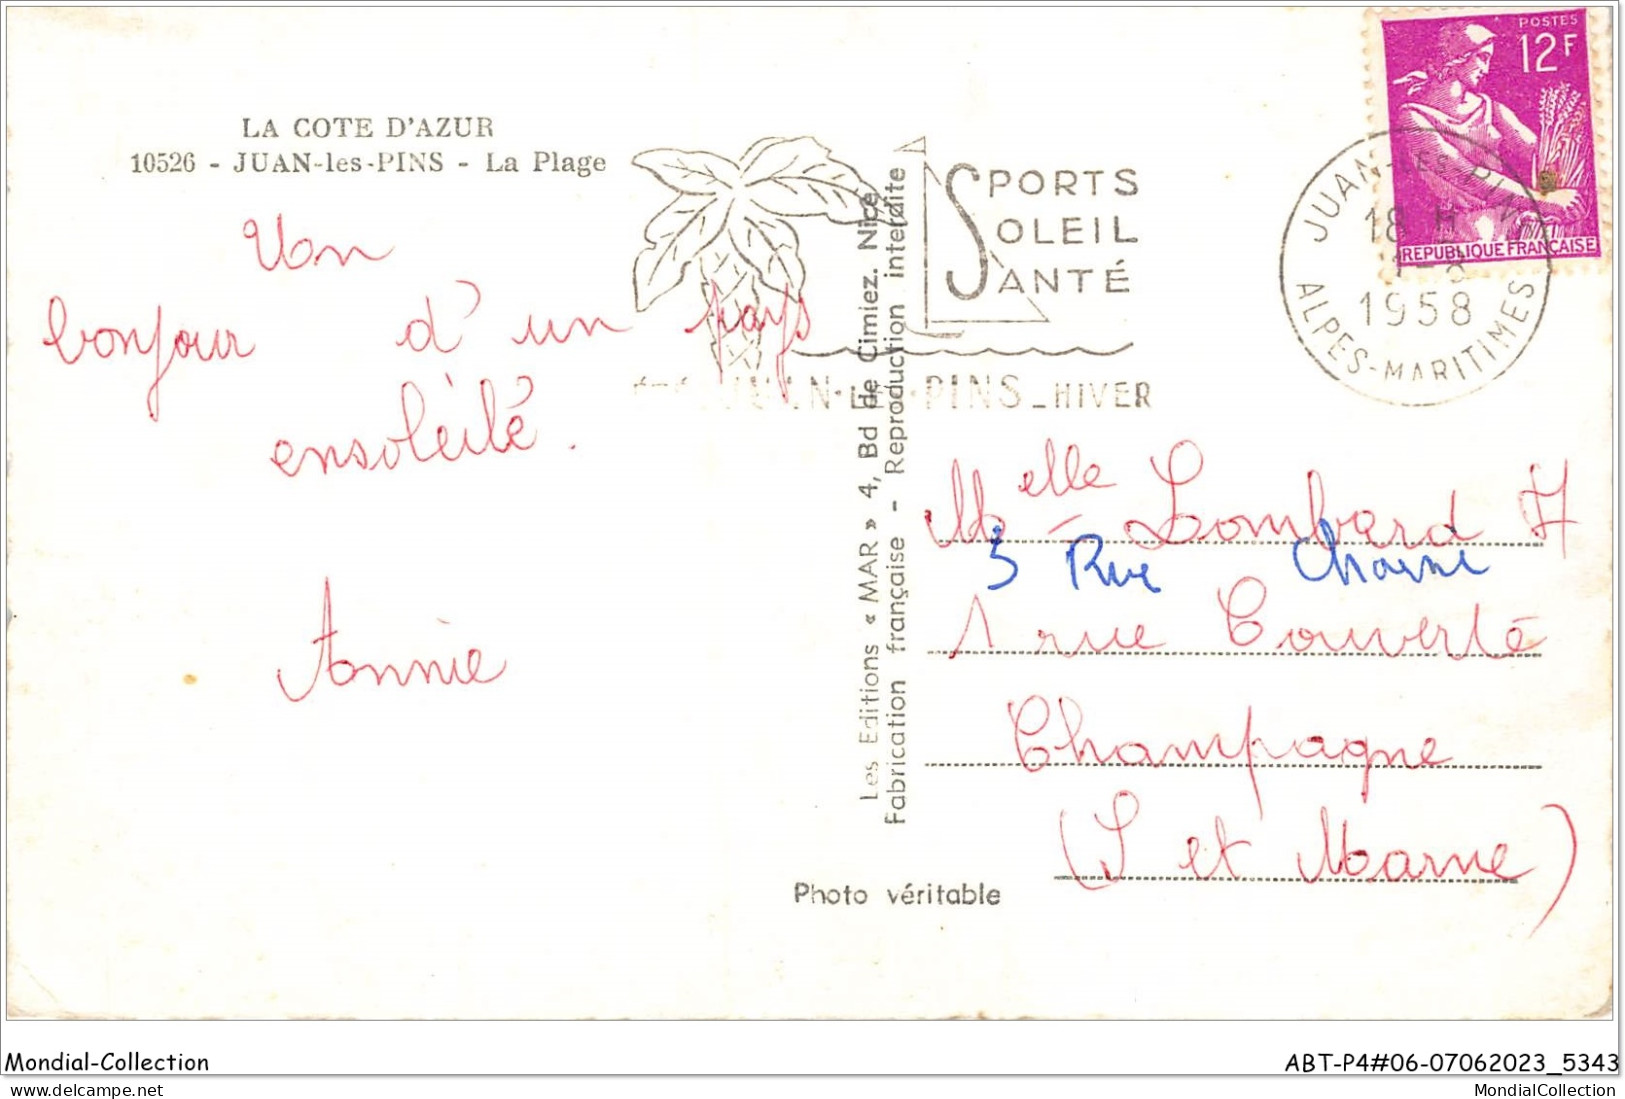 LA COTE D'AZUR
10526 - JUAN-les-PINS - La Plage
Un
bonjour d'un pays
ensoleillé.
Annie
SPORTS
SOLEIL
SANTÉ
JUAN-LES-PINS _ HIVER
Les Editions « MAR » 4, Bd de Cimiez. Nice
Fabrication française - Reproduction interdite
Photo véritable
POSTES
12F
REPUBLIQUE FRANÇAISE
JUAN-LES-PINS
18 H
1958
ALPES-MARITIMES
Melle Lombard
3 Rue
1 rue Couverte
Champagne
(S et Marne)
Mondial-Collection
ABT-P4#06-07062023_5343
©delcampe.net
MondialCollection